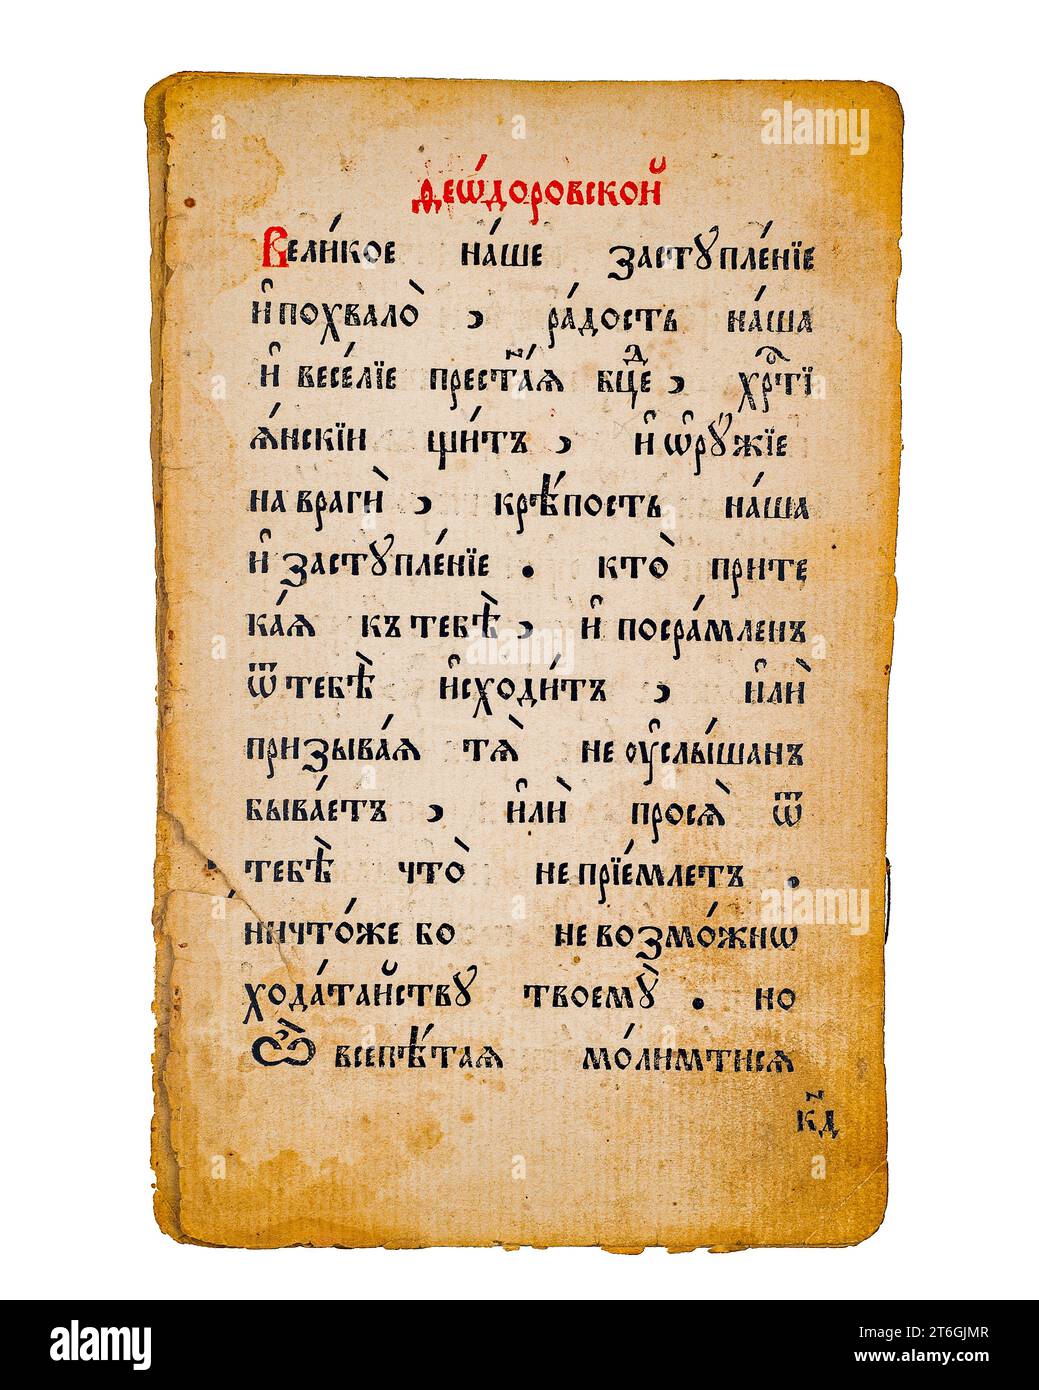 Ѳеѡ́доровскои̃
Вели́кое на́ше застꙋпле́нїе
и҆похвало̀ , ра́дость на́ша
и҆ весе́лїе прест҃а́ѧ бц҃де , хрⷭ҇тї
ѧ́нскїи щи́тъ , и҆ѻ҆рꙋ́жїе
на враги̂ , крѣ́пость на́ша
и҆застꙋпле́нїе . кто̀ прите
ка́ѧ къ тебѣ̀ , и҆ посра́мленъ
ѿ тебѣ̀ и҆сходи́тъ , и҆лѝ
призыва́ѧ тѧ̀ не ᲂу҆слы́шанъ
быва́етъ , и҆лѝ просѧ̀ ѿ
тебѣ̀ что̀ не прїе́млетъ .
ничто́же бо не возмо́жнѡ
хода́таи̃ствꙋ твоемꙋ̀ . но
ѽ всепѣ́таѧ мо́лимтисѧ
к҃д
a
alamy
alamy
Image ID: 2T6GJMR
www.alamy.com